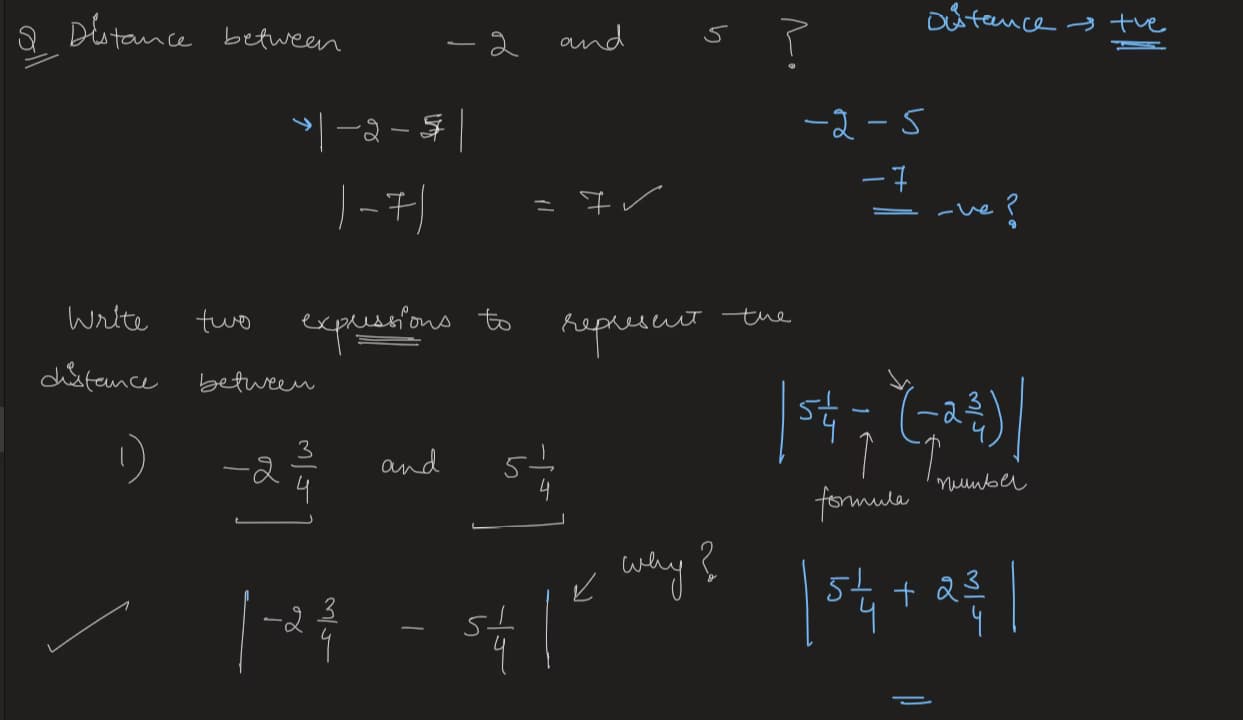 Q Distance between -2 and 5 ?
Distance → +ve
→ |-2 - 5|
|-7| = 7 ✓
-2 - 5
-7
-ve ?
Write two expressions to represent the
distance between
1) -2 3/4 and 5 1/4
|5 1/4 - (-2 3/4)|
formula
number
why ?
✓ |-2 3/4 - 5 1/4|
|5 1/4 + 2 3/4|
=